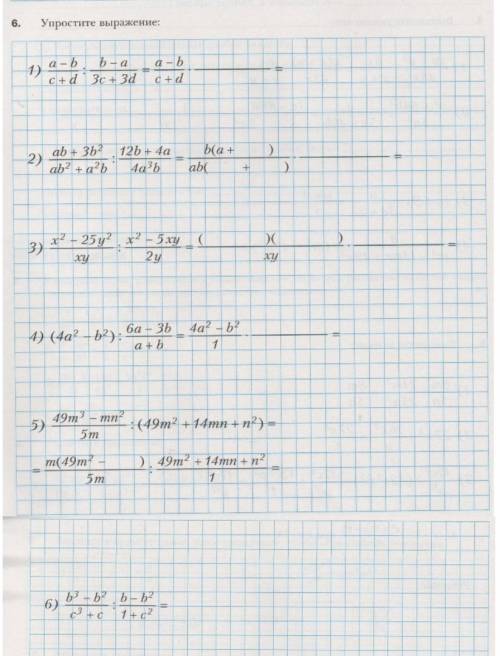 6. Упростите выражение:
1) \frac{a-b}{c+d} : \frac{b-a}{3c+3d} = \frac{a-b}{c+d} · ——— =
2) \frac{ab+3b²}{ab²+a²b} : \frac{12b+4a}{4a³b} = \frac{b(a+ )}{ab( + )} · ——— =
3) \frac{x²-25y²}{xy} : \frac{x²-5xy}{2y} = \frac{( )( )}{xy} · ——— =
4) (4a²-b²) : \frac{6a-3b}{a+b} = \frac{4a²-b²}{1} · ——— =
5) \frac{49m³-mn²}{5m} : (49m²+14mn+n²) =
= \frac{m(49m²- )}{5m} : \frac{49m²+14mn+n²}{1} =
6) \frac{b³-b²}{c³+c} : \frac{b-b²}{1+c²} =